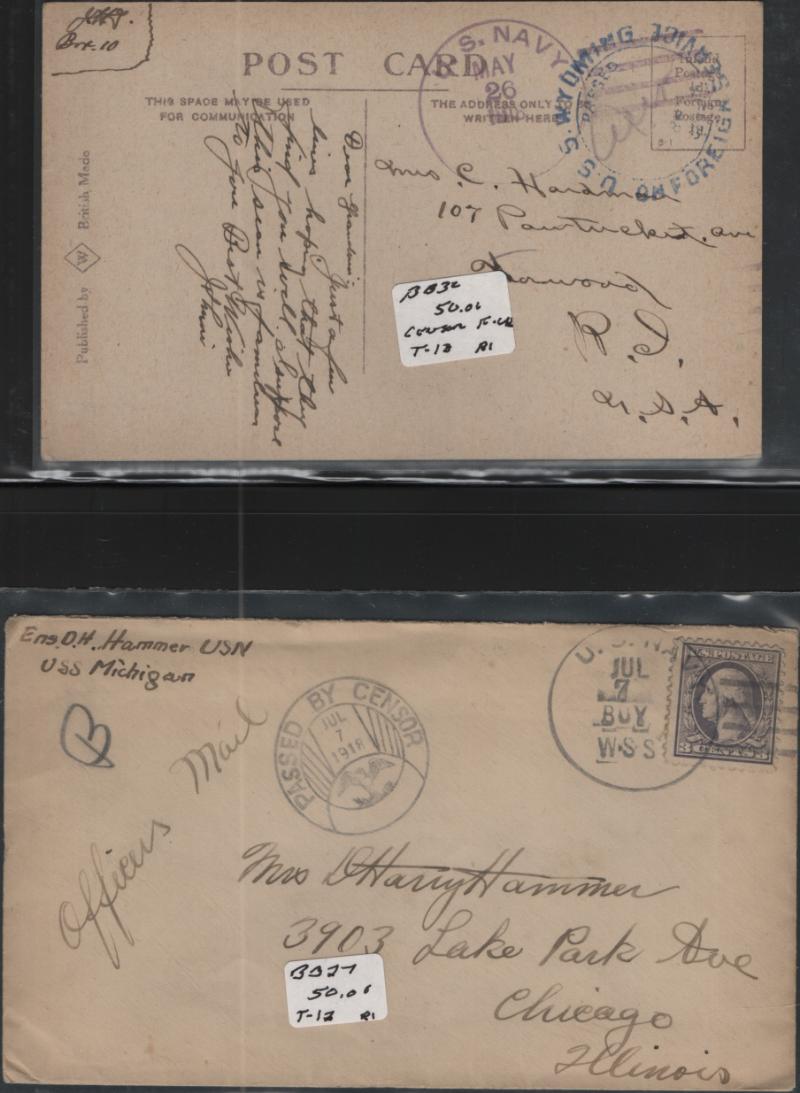 Box 10
POST CARD
THIS SPACE MAY BE USED
FOR COMMUNICATION
THE ADDRESS ONLY TO BE
WRITTEN HERE
U.S. NAVY
MAY
26
U.S.S. WYOMING
ON FOREIGN SERVICE
PASSED
Inland
Postage
½d.
Foreign
Postage
1d.
Published by W British Made
Dear Grandma Just a few
lines hoping that they
find you well
this scean is familiar
to you Best Wishes
Johnie
Mrs C. Hardman
107 Pawtucket. ave
R. I.
U. S. A.
BB32
50.00
T-12 R1
Ens. D.H. Hammer USN
USS Michigan
B
Officers Mail
PASSED BY CENSOR
JUL
7
1918
U.S. NAVY
JUL
7
BUY
W·S·S
U.S. POSTAGE
3 CENTS 3
Mrs D Harry Hammer
3903 Lake Park Ave
Chicago
Illinois
BB27
50.00
T-12 R1